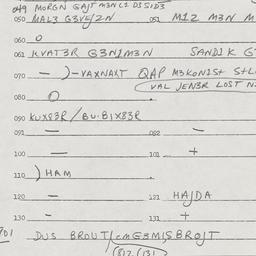 049 MORGN GAJT M3NC1 DISID3
050 MAL3 G3VE/2N 051 M1Z M3N M
060 O
061 KVAT3R G3N1M3N SANDIK G
070 — )-VAXNAXT QAP M3KON1St StL
(VAL JEN3R LOST N
080 O
090 KUX83R/BU.B1X83R
091 — 092 —
100 — 101 +
110 ) HAM
120 — 121 HAJDA
130 — 131 +
701 DUS BROUT/cmG3M1SBROJT
(812.(131